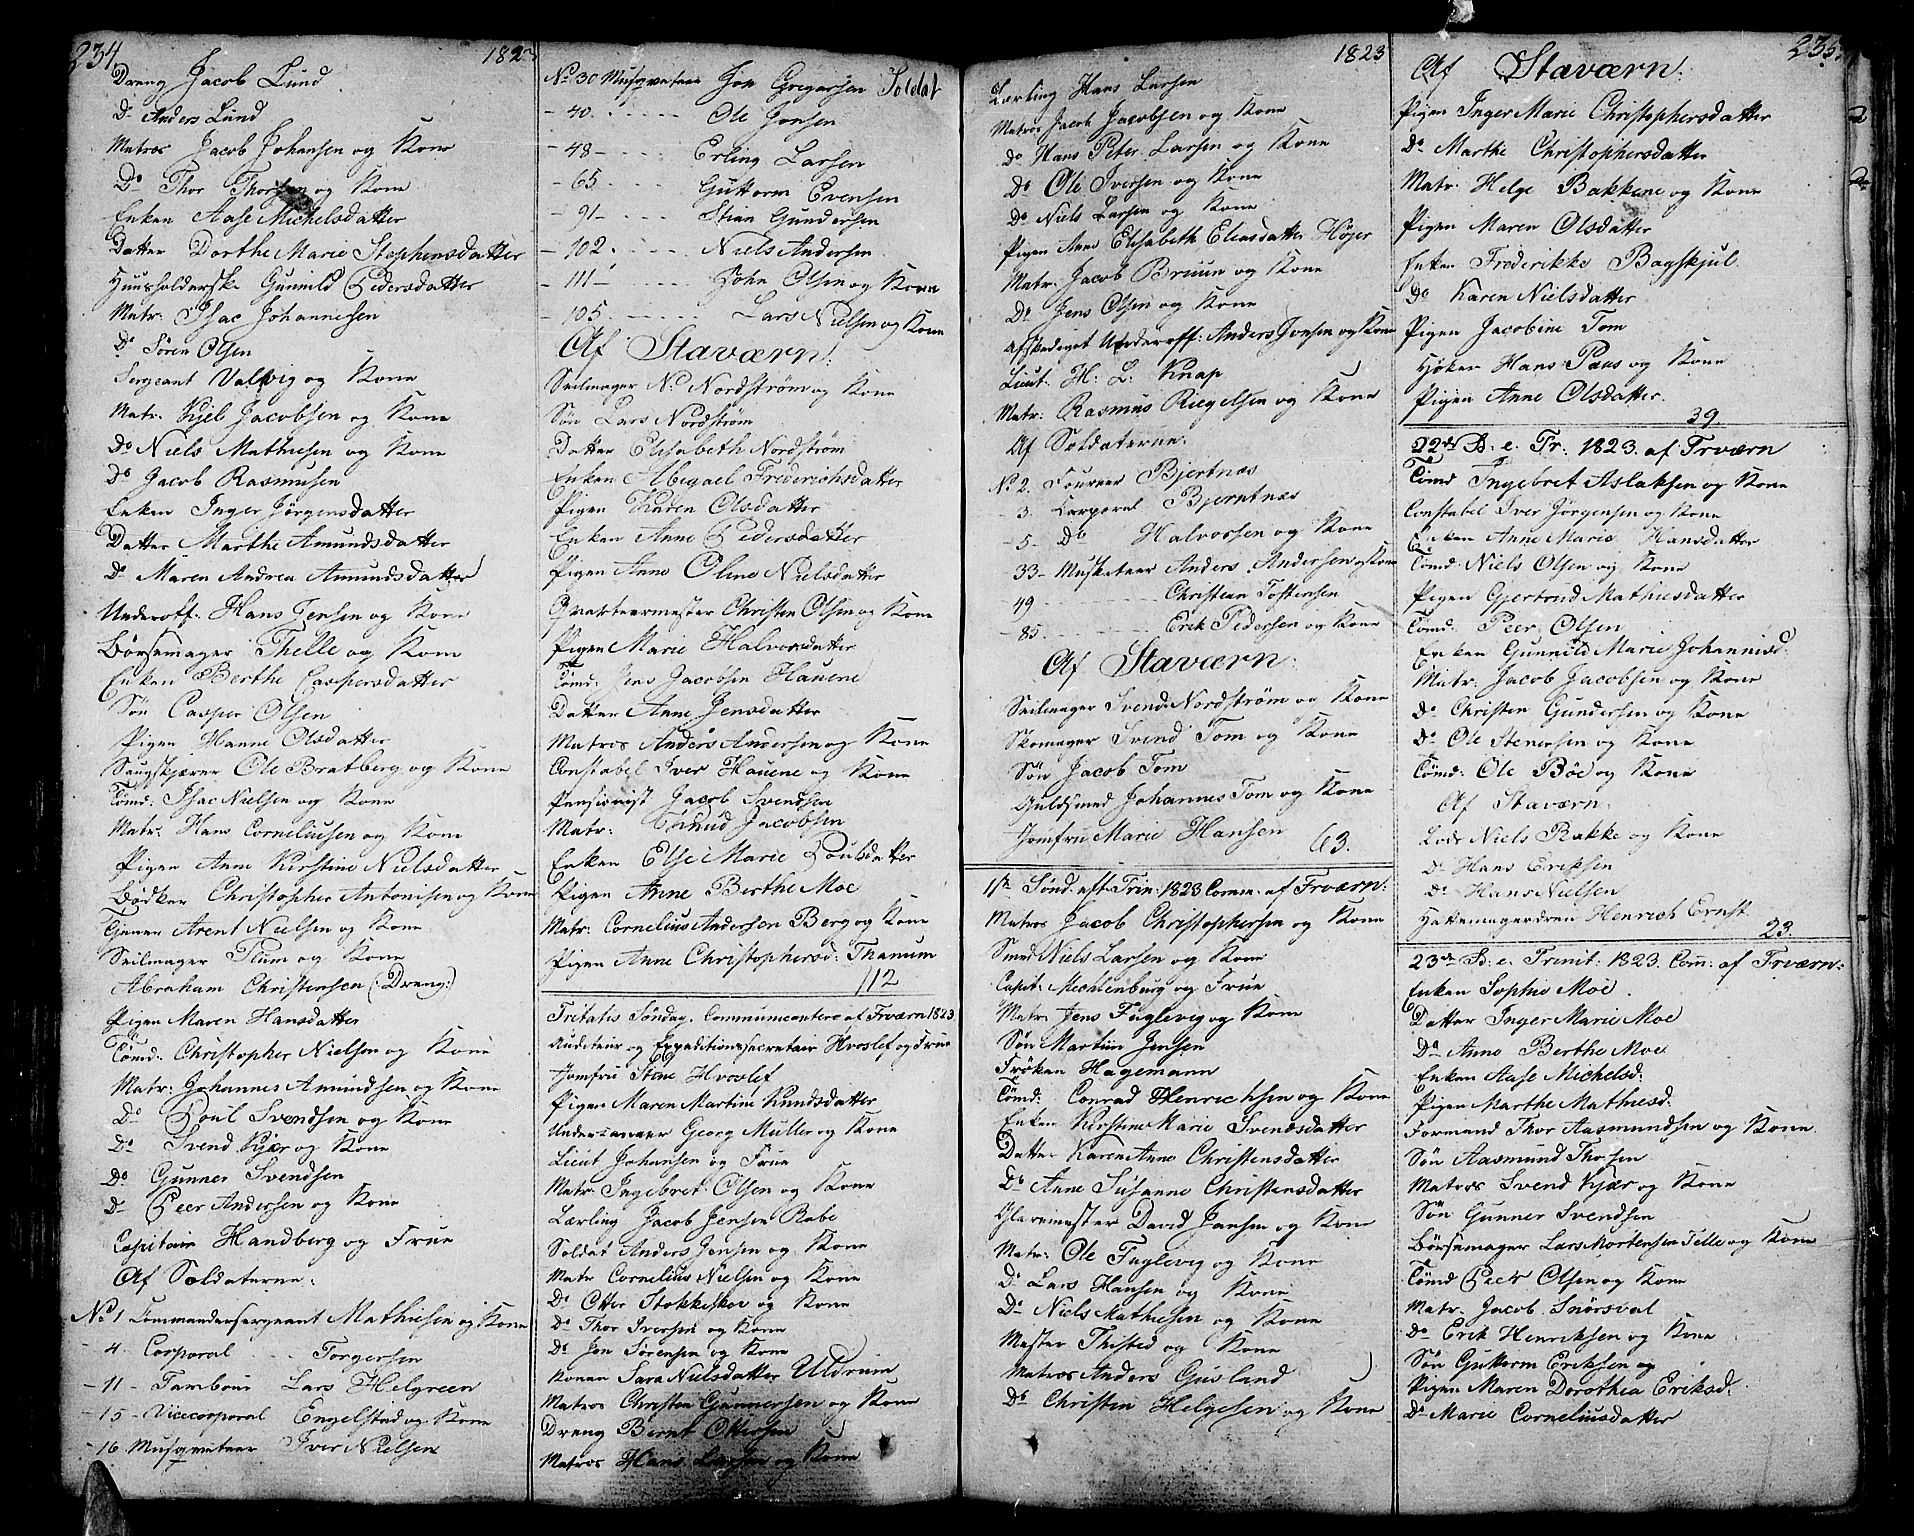 234
1823
Dreng Jacob Lund
Do Anders Lund
Matros Jacob Johansen og Kone
Do Thor Thorsen og Kone
Enken Aase Michelsdatter
Datter Dorthe Marie Stephensdatter
Huusholderske Gunnild Pedersdatter
Matr: Isac Johannesen
Do Sören Olsen
Sergeant Valvig og Kone
Matr: Kjel Jacobsen og Kone
Do Niels Mathisen og Kone
Do Jacob Rasmusen
Enken Inger Jörgensdatter
Datter Marthe Amundsdatter
Do Maren Andrea Amundsdatter
Underoff: Hans Jensen og Kone
Börsemager Thelle og Kone
Enken Berthe Caspersdatter
Sön Casper Olsen
Pigen Hanne Olsdatter
Saugskjærer Ole Bratberg og Kone
Tömd: Isac Nielsen og Kone
Matr: Hans Corneliusen og Kone
Pigen Anne Kirstine Nielsdatter
Bödker Christopher Antonisen og Kone
Arent Nielsen og Kone
Seilmager Plum og Kone
Abraham Christensen (: Dreng:)
Pigen Maren Hansdatter
Tömd: Christopher Nielsen og Kone
Matr: Johannes Amundsen og Kone
Do Poul Svendsen og Kone
Do Svend Kjær og Kone
Do Gunner Svendsen
Do Peer Andersen og Kone
Capitain Handberg og Frue
Af Soldaterne:
No 1 Commandeersergeant Mathiesen og Kone
- 4 Corporal Torgersen
- 11 Tambour Lars Helgreen
- 15 Vicecorporal Engelstad og Kone
- 16 Musqveteer Iver Nielsen
No 30 Musqveteer Jon Gregersen Soldat
- 40 Ole Jonsen
- 48 Erling Larsen
- 65 Guttorm Evensen
- 91 Stian Gundersen
- 102 Niels Andersen
- 111 John Olsen og Kone
- 105 Lars Nielsen og Kone
Af Staværn:
Seilmager N: Nordström og Kone
Sön Lars Nordström
Datter Elisabeth Nordström
Enken Abigael Frederichsdatter
Pigen Karen Olsdatter
Enken Anne Pedersdatter
Pigen Anne Oline Nielsdatter
Qvarteermester Christen Olsen og Kone
Pigen Marie Halvorsdatter
Tömd: Jens Jacobsen Hauene
Datter Anne Jensdatter
Matros Anders Andersen og Kone
Constabel Iver Hauene og Kone
Pensionist Jacob Svendsen
Matr: Amund Jacobsen
Enken Else Marie Poulsdatter
Pigen Anne Berthe Moe
Matr: Cornelius Andersen Berg og Kone
Pigen Anne Christophersd: Thanum
112
Tritatis Söndag. Communicantere af Frværn 1823
Auditeur og Expeditionssecretair Hvoslef og Frue
Jomfru Stone Hvoslef
Pigen Maren Martine Knudsdatter
Georg Müller og Kone
Lieut Johansen og Frue
Matr: Ingebret Olsen og Kone
Lærling Jacob Jensen Rabe
Soldat Anders Jensen og Kone
Matr Cornelius Nielsen og Kone
Do Otter Stokkeskov og Kone
Do Thor Iversen og Kone
Do Jon Sörensen og Kone
Konen Sara Nielsdatter Uldrum
Matros Christen Gunnersen og Kone
Dreng Bernt Ottersen
Matros Hans Larsen og Kone
1823
Lærling Hans Larsen
Matros Jacob Jacobsen og Kone
Do Hans Peter Larsen og Kone
Do Ole Iversen og Kone
Do Niels Larsen og Kone
Pigen Anne Elisabeth Eliasdatter Höjer
Matr: Jacob Bruun og Kone
Do Jens Olsen og Kone
Afskediget Underoff: Anders Jonsen og Kone
Lieut. H: L: Knap
Matr: Rasmus Riegelsen og Kone
Af Soldaterne:
No 2. Foureer Bjertnæs
- 3. Corporal Bjerntnæs
- 5- Do Halvorsen og Kone
33- Musketeer Anders Andersen og Kone
49 Christian Tostensen
- 85 Erik Pedersen og Kone
Af Staværn:
Seilmager Svend Nordström og Kone
Skomager Svend Tom og Kone
Sön Jacob Tom
Guldsmed Johannes Tom og Kone
Jomfru Marie Hansen
63.
11te Sönd. eft: Trin: 1823 Comm: af Frværn:
Matros Jacob Christophersen og Kone
Smed Niels Larsen og Kone
Capit: Mechlenburg og Frue
Matr: Jens Fuglevig og Kone
Sön Martin Jensen
Fröken Hagemann
Tömd: Conrad Henrichsen og Kone
Enken Kirstine Marie Svendsdatter
Datter Karen Anne Christensdatter
Do Anne Susanne Christensdatter
Glarmester David Jansen og Kone
Matr: Ole Fuglevig og Kone
Do Lars Hansen og Kone
Do Niels Mathisen og Kone
Mester Thisted og Kone
Matros Anders Gusland
Do Christen Helgesen og Kone
235
Af Staværn:
Pigen Inger Marie Christophersdatter
Do Marthe Christophersdatter
Matr: Helge Bakkene og Kone
Pigen Maren Olsdatter
Enken Frederikke Bagskjul
Do Karen Nielsdatter
Pigen Jacobine Tom
Höker Hans Paus og Kone
Pigen Anne Olsdatter.
39
22de S: e. Tr: 1823. af Frværn
Tömd Ingebret Aslaksen og Kone
Constabel Iver Jörgensen og Kone
Enken Anne Marie Hansdatter
Tömd: Niels Olsen og Kone
Pigen Gjertrud Mathiesdatter
Tömd: Peer Olsen
Enken Gunnild Marie Johannesd:
Matr: Jacob Jacobsen og Kone
Do Christen Gundersen og Kone
Do Ole Stenersen og Kone
Tömd: Ole Böe og Kone
Af Staværn:
Lods Niels Bakke og Kone
Do Hans Eriksen
Do Hans Nielsen
Hattemagerdren Henrich Ernst
23.
23de S: e. Trinit: 1823. Com: af Frværn:
Enken Sophie Moe.
Datter Inger Marie Moe
Do Anne Berthe Moe
Enken Aase Michelsd:
Pigen Marthe Mathiesd:
Formand Thor Aasmundsen og Kone
Sön Aasmund Thorsen
Matros Svend Kjær og Kone
Sön Gunner Svendsen
Börsemager Lars Mortensen Telle og Kone
Tömd Peer Olsen og Kone
Matr. Jacob Snörsval
Do Erik Henriksen og Kone
Sön Guttorm Eriksen og
Pigen Maren Dorothea Eriksd:
Do Marie Corneliusdatter